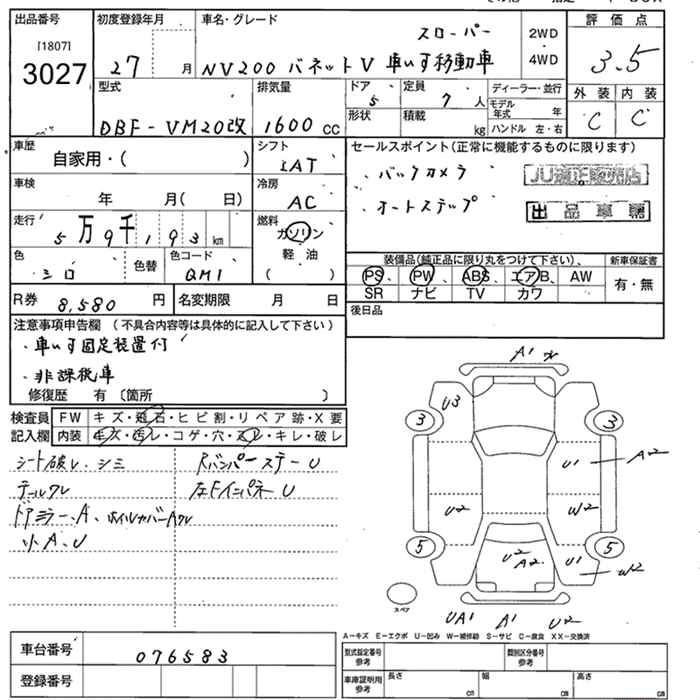 出品番号
[1807]
3027
初度登録年月
27 月
車名・グレード
スローパー
NV200 バネットV 車いす移動車
2WD
・
4WD
評価点
3.5
外装 内装
C C
型式
DBF-VM20改
排気量
1600 cc
ドア
5
形状
定員
7 人
積載
kg
ディーラー・並行
モデル年式 年
ハンドル 左・右
車歴
自家用・( )
シフト
IAT
車検
年 月( 日)
冷房
AC
走行
5万9千193 km
燃料
ガソリン
軽油
( )
色
シロ
色替
色コード
QM1
R券 8,580 円
名変期限 月 日
セールスポイント(正常に機能するものに限ります)
・バックカメラ
・オートステップ
JU適正販売店
出品車輌
装備品(純正品に限り丸をつけて下さい)、
PS、 PW、 ABS、 エアB、 AW
SR ナビ TV カワ
新車保証書
有・無
後日品
注意事項申告欄 (不具合内容等は具体的に記入して下さい)
・車いす固定装置付
・非課税車
修復歴 有〔箇所 〕
検査員
記入欄
FW キズ・飛石・ヒビ割・リペア跡・X要
内装 キズ・汚レ・コゲ・穴・スレ・キレ・破レ
シート破レ・シミ
テールワレ
ドアミラーA、ホイルカバーAワレ
小A、U
Rバンパーステー U
左Fインパネ U
A1
U3
3
3
U1
A2
U2
W2
5
5
U2
A2
U1
W2
スペア
UA1 A1 U2
A−キズ E−エクボ U−凹み W−補修跡 S−サビ C−腐食 XX−交換済
車台番号 076583
登録番号
型式指定番号
参考
類別区分番号
参考
車庫証明用
参考
長さ cm
幅 cm
高さ cm